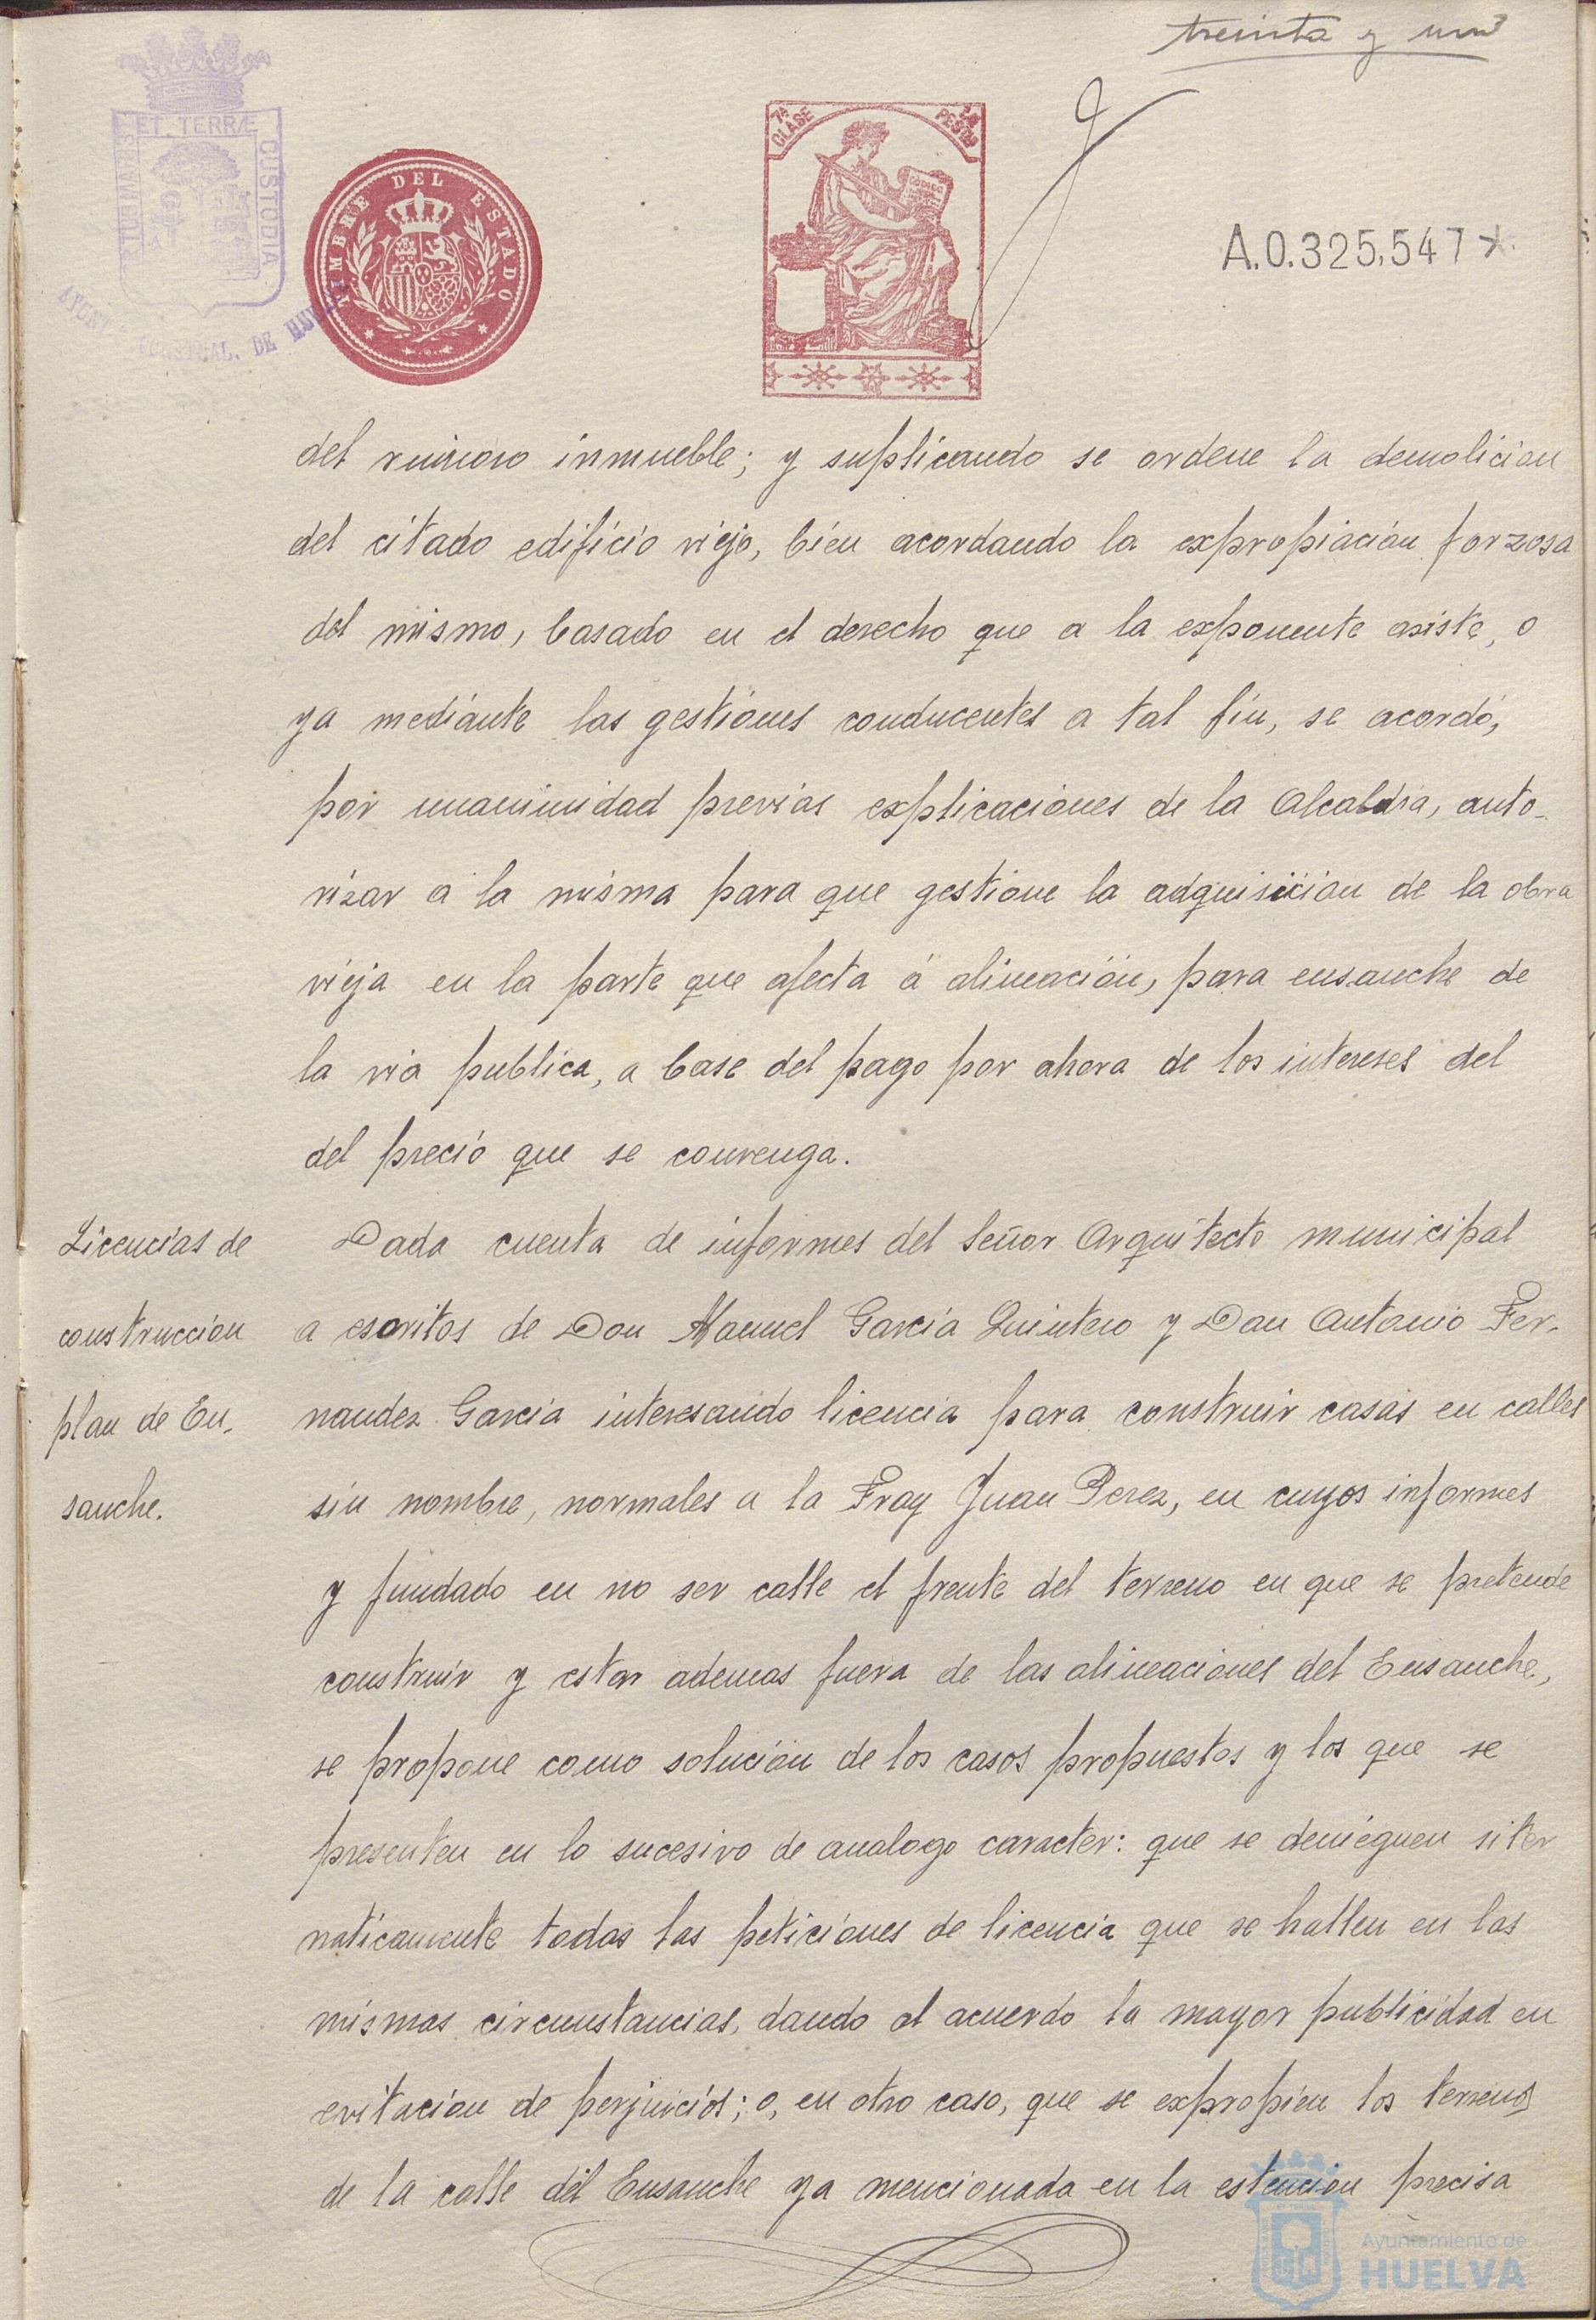 treinta y uno
PORTUM MARIS ET TERRÆ CUSTODIA
CONSTCAL. DE HUELVA
TIMBRE DEL ESTADO
7ª CLASE
PESTAS
A.0.325,547
del ruinoso inmueble; y suplicando se ordene la demolicion
del citado edificio viejo, bien acordando la expropiación forzosa
del mismo, basado en el derecho que a la exponente asiste, o
ya mediante las gestiones conducentes a tal fin, se acordó,
por unanimidad previas explicaciones de la Alcaldia, auto-
rizar a la misma para que gestione la adquisicion de la obra
vieja en la parte que afecta á alineación, para ensanche de
la via publica, a base del pago por ahora de los intereses del
del precio que se convenga.
Licencias de
construccion
plan de En-
sanche.
Dada cuenta de informes del Señor Arquitecto municipal
a escritos de Don Manuel Garcia Quintero y Don Antonio Fer-
nandez Garcia interesando licencia para construir casas en calles
sin nombre, normales a la Fray Juan Perez, en cuyos informes
y fundado en no ser calle el frente del terreno en que se pretende
construir y estar ademas fuera de las alineaciones del Ensanche,
se propone como solución de los casos propuestos y los que se
presenten en lo sucesivo de analogo caracter: que se denieguen siter
naticamente todas las peticiones de licencia que se hallen en las
mismas circunstancias, dando al acuerdo la mayor publicidad en
evitacion de perjuicios; o, en otro caso, que se expropien los terrenos
de la calle del Ensanche ya mencionada en la estencion precisa
Ayuntamiento de
HUELVA